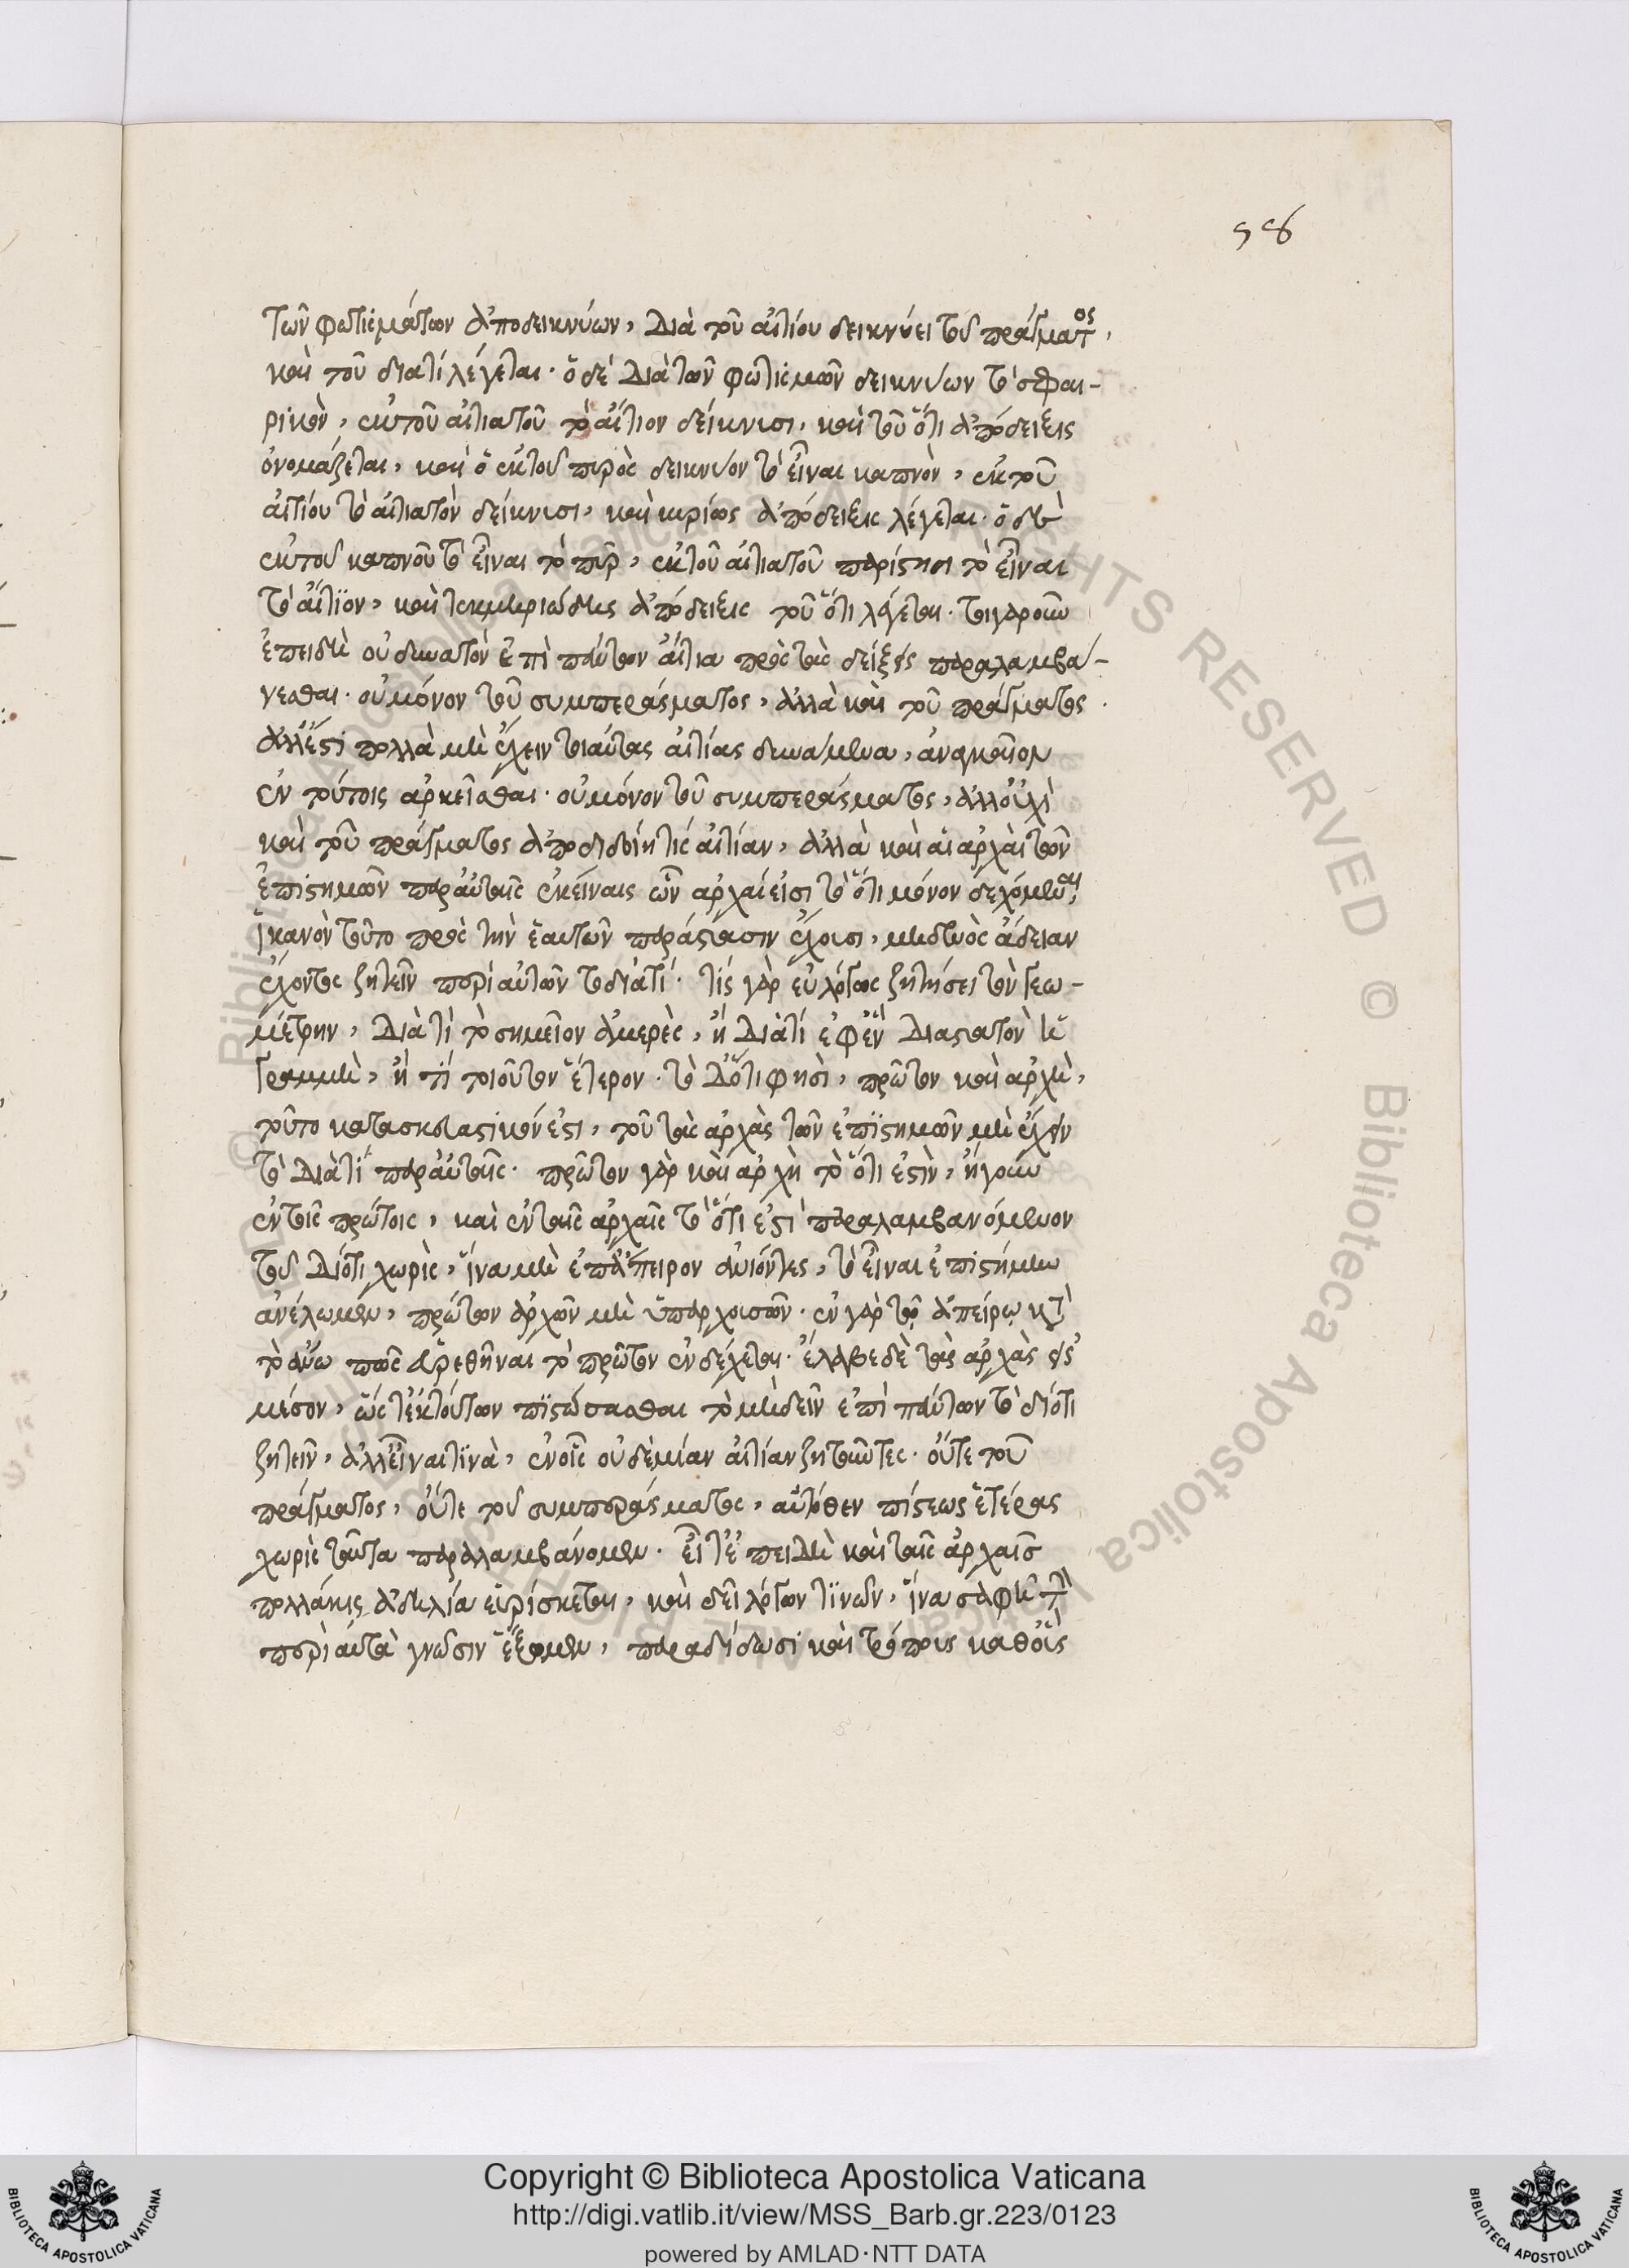 58
τῶν φωτισμάτων ἀποδεικνύων, διὰ τοῦ αἰτίου δεικνύει τοῦ πράγματος,
καὶ τοῦ διατί λέγεται· ὁ δὲ διὰ τῶν φωτισμῶν δεικνύων τὸ σφαι-
ρικὸν, ἐκ τοῦ αἰτιατοῦ τὸ αἴτιον δείκνυσι, καὶ τοῦ ὅτι ἀπόδειξις
ὀνομάζεται, καὶ ὁ ἐκ τοῦ πυρὸς δεικνύον τὸ εἶναι καπνὸν, ἐκ τοῦ
αἰτίου τὸ αἰτιατὸν δείκνυσι, καὶ κυρίως ἀπόδειξις λέγεται· ὁ δὲ
ἐκ τοῦ καπνοῦ τὸ εἶναι τὸ πῦρ, ἐκ τοῦ αἰτιατοῦ παρίστησι τὸ εἶναι
τὸ αἴτιον, καὶ τεκμηριώδης ἀπόδειξις τοῦ ὅτι λέγεται· τοιγαροῦν
ἐπειδὴ οὐ δυνατὸν ἐπὶ πάντων αἴτια πρὸς τὰς δείξεις παραλαμβά-
νεσθαι· οὐ μόνον τοῦ συμπεράσματος, ἀλλὰ καὶ τοῦ πράγματος
ἀλλ' ἔστι πολλὰ μὴ ἔχειν τοιαύτας αἰτίας δυνάμενα, ἀναγκαῖον
ἐν τούτοις ἀρκεῖσθαι· οὐ μόνον τοῦ συμπεράσματος, ἀλλ' οὐχὶ
καὶ τοῦ πράγματος ἀποδιδοίη τις αἰτίαν, ἀλλὰ καὶ αἱ ἀρχαὶ τῶν
ἐπιστημῶν παρ' αὐταῖς ἐκείναις ὧν ἀρχαί εἰσι τὸ ὅτι μόνον δεχόμεναι,
ἱκανὸν τοῦτο πρὸς τὴν ἑαυτῶν παράστασιν ἔχουσι, μηδενὸς ἄδειαν
ἔχοντος ζητεῖν περὶ αὐτῶν τὸ διατί· τίς γὰρ εὐλόγως ζητήσει τὸν γεω-
μέτρην, διὰ τί τὸ σημεῖον ἀμερὲς, ἢ διὰ τί ἐφ' ἓν διαστατὸν ἡ
γραμμὴ, ἢ τί τοιοῦτον ἕτερον· τὸ δ' ὅτι φησὶ, πρῶτον καὶ ἀρχὴ,
τοῦτο κατασκευαστικόν ἐστι, τοῦ τὰς ἀρχὰς τῶν ἐπιστημῶν μὴ ἔχειν
τὸ διὰ τί παρ' αὐταῖς· πρῶτον γὰρ καὶ ἀρχὴ τὸ ὅτι ἐστὶν, ἤγουν
ἐν τοῖς πρώτοις, καὶ ἐν ταῖς ἀρχαῖς τὸ ὅτι ἐστὶ παραλαμβανόμενον
τοῦ διότι χωρὶς, ἵνα μὴ ἐπ' ἄπειρον ἀνιόντες, τὸ εἶναι ἐπιστήμην
ἀνέλωμεν, πρώτων ἀρχῶν μὴ ὑπαρχουσῶν· ἐν γὰρ τῷ ἀπείρῳ κατὰ
τὸ ἄνω πῶς εὑρεθῆναι τὸ πρῶτον ἐνδέχεται· ἔλαβε δὲ τὰς ἀρχὰς εἰς
μέσον, ὥστ' ἐκ τούτων πιστώσασθαι τὸ μὴ δεῖν ἐπὶ πάντων τὸ διότι
ζητεῖν, ἀλλ' εἶναι τινὰ, ἐν οἷς οὐδεμίαν αἰτίαν ζητοῦντες· οὔτε τοῦ
πράγματος, οὔτε τοῦ συμπεράσματος, αὐτόθεν πίστεως ἑτέρας
χωρὶς ταῦτα παραλαμβάνομεν· εἶτ' ἐπειδὴ καὶ ταῖς ἀρχαῖς
πολλάκις ἀδηλία εὑρίσκεται, καὶ δεῖ λόγων τινῶν, ἵνα σαφῆ τὴν
περὶ αὐτὰ γνῶσιν ἕξομεν, παραδίδωσι καὶ τρόπους καθ' οὓς